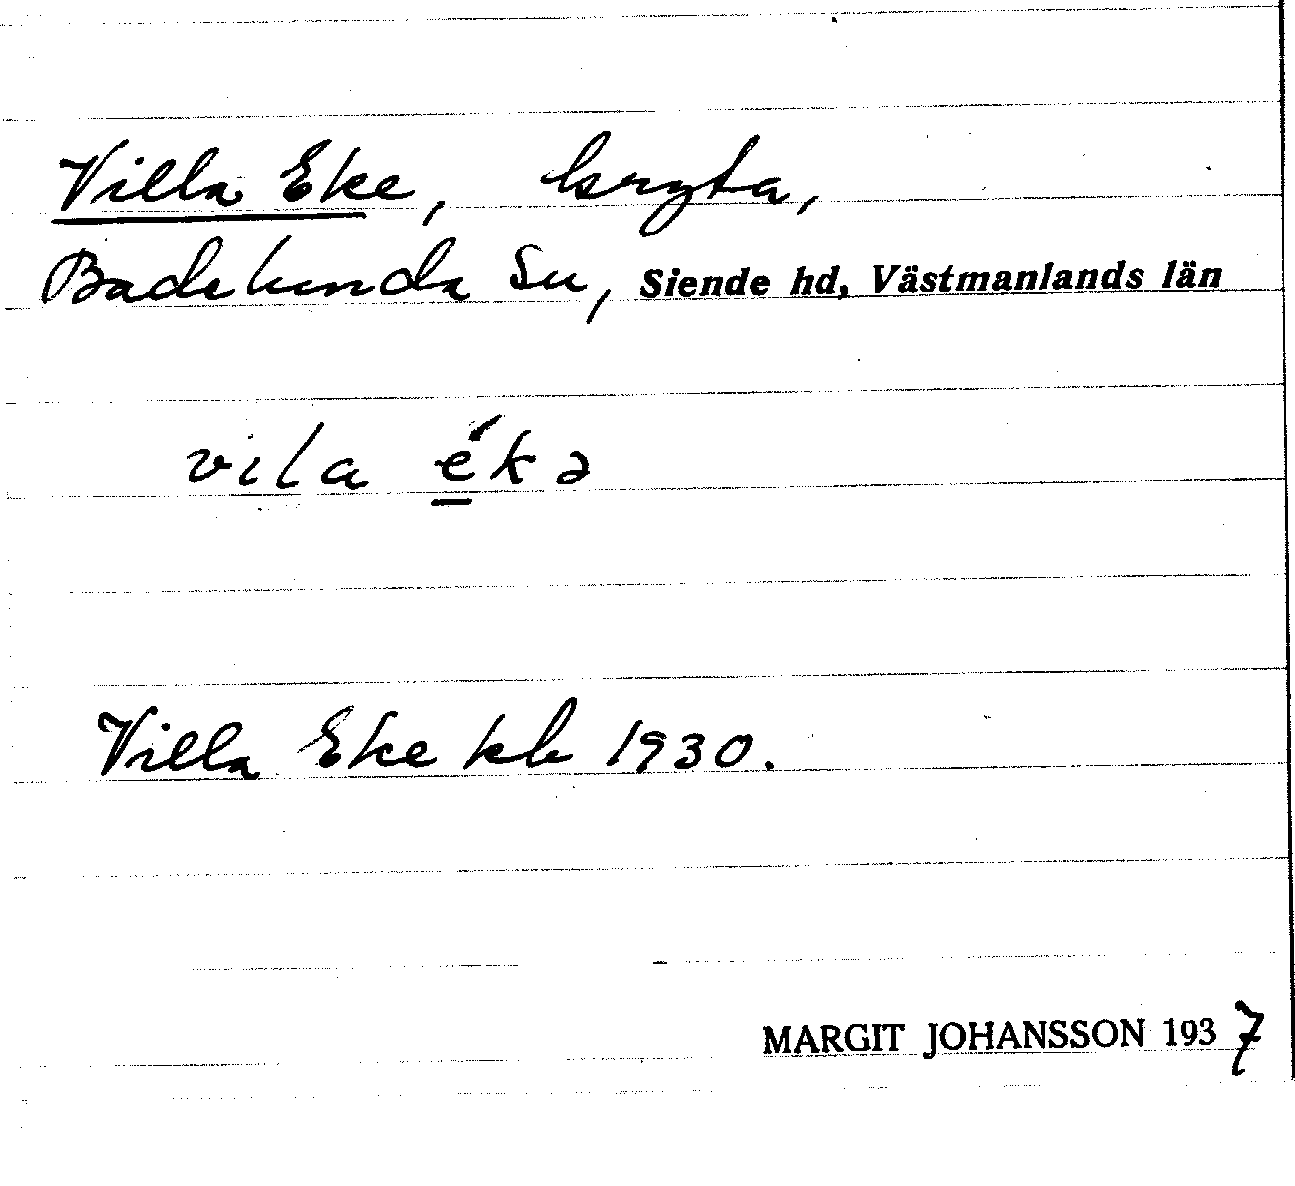 Villa Eke, bsryta,
Badelunda sn, Siende hd, Västmanlands län
vila ékə
Villa Eke kb 1930.
MARGIT JOHANSSON 1937